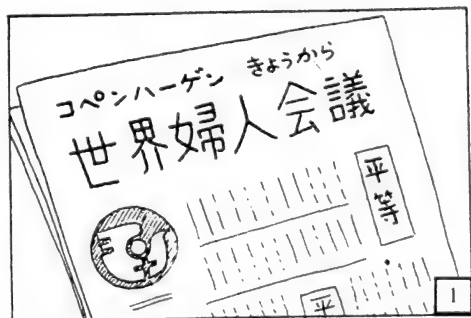 コペンハーゲン きょうから
世界婦人会議
平等
平
1